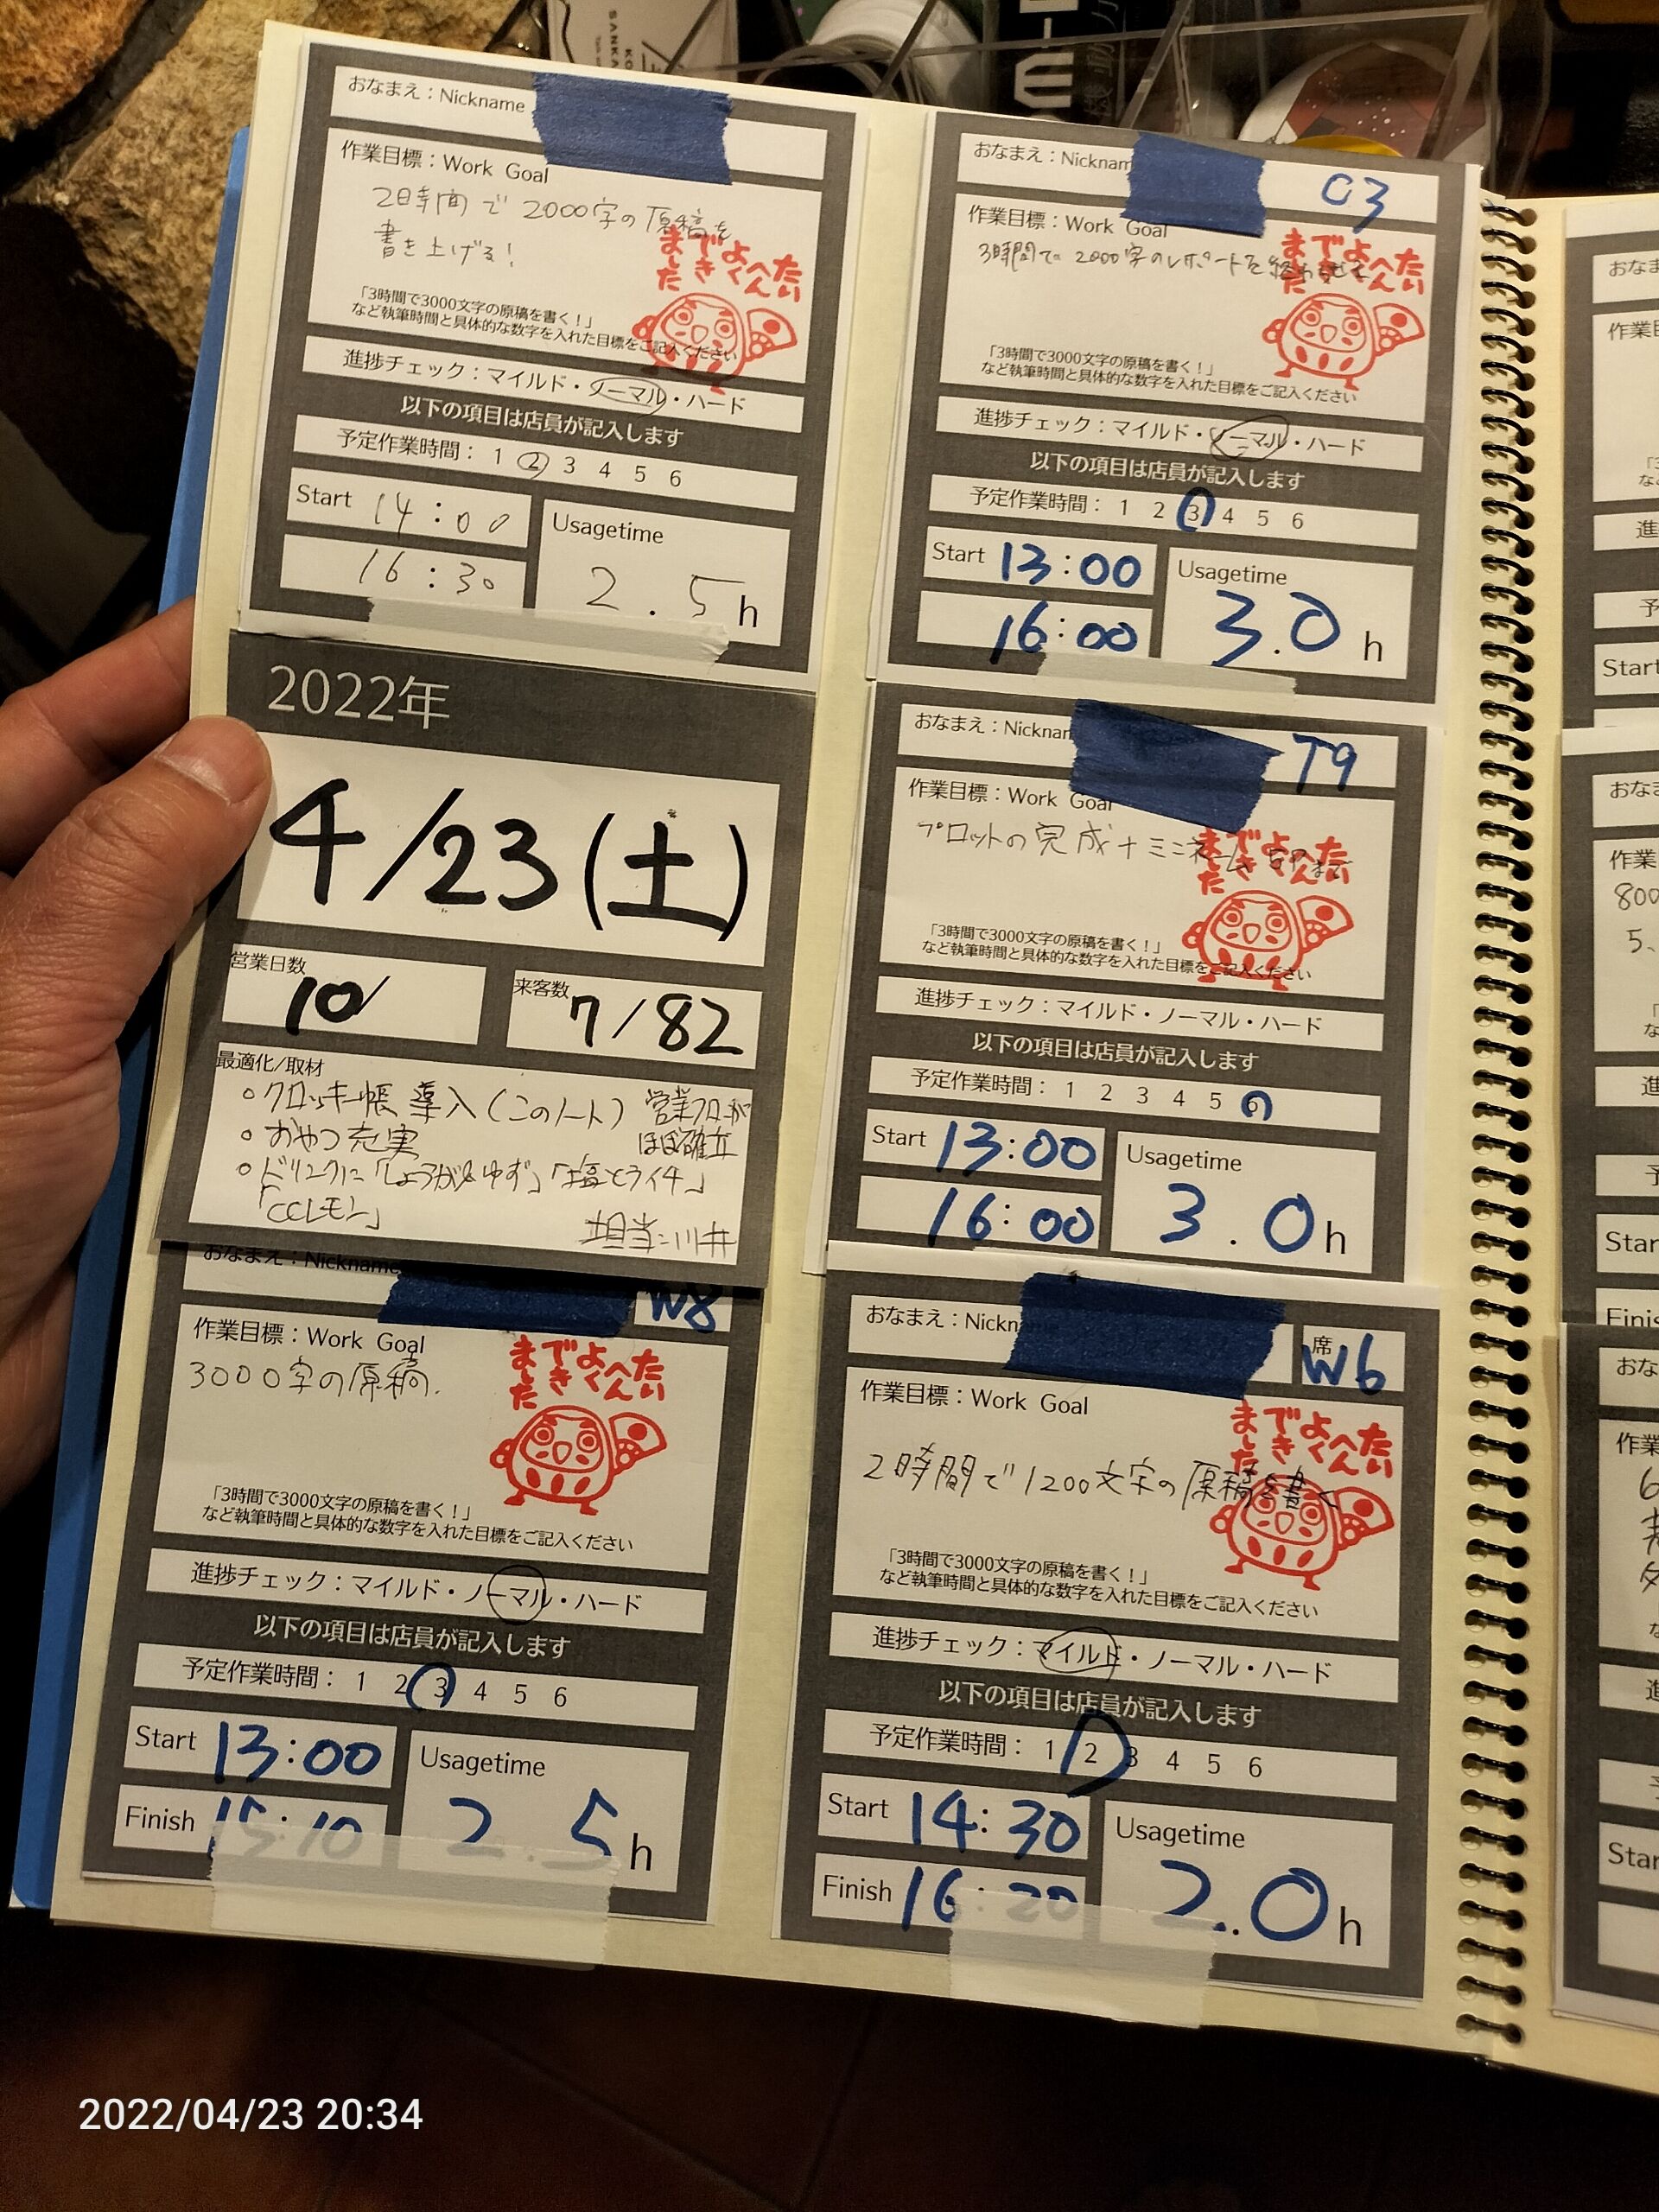 おなまえ：Nickname
作業目標：Work Goal
2時間で2000字の原稿を
書き上げる！
たいへんよくできました
「3時間で3000文字の原稿を書く！」
など執筆時間と具体的な数字を入れた目標をご記入ください
進捗チェック：マイルド・ノーマル・ハード
以下の項目は店員が記入します
予定作業時間： 1 2 3 4 5 6
Start 14:00
16:30
Usagetime
2.5h
2022年
4/23(土)
営業日数
10/
来客数
7/82
最適化/取材
○クロッキー帳導入（このノート）
営業フローが
ほぼ確立
○おやつ充実
○ドリンクに「しょうが&ゆず」「塩とライチ」
「CCレモン」
担当:川井
おなまえ：Nickname
W8
作業目標：Work Goal
3000字の原稿.
たいへんよくできました
「3時間で3000文字の原稿を書く！」
など執筆時間と具体的な数字を入れた目標をご記入ください
進捗チェック：マイルド・ノーマル・ハード
以下の項目は店員が記入します
予定作業時間： 1 2 3 4 5 6
Start 13:00
Finish 15:10
Usagetime
2.5h
おなまえ：Nicknam
03
作業目標：Work Goal
3時間で2000字のレポートを終わらせる
たいへんよくできました
「3時間で3000文字の原稿を書く！」
など執筆時間と具体的な数字を入れた目標をご記入ください
進捗チェック：マイルド・ノーマル・ハード
以下の項目は店員が記入します
予定作業時間： 1 2 3 4 5 6
Start 13:00
16:00
Usagetime
3.0h
おなまえ：Nicknam
T9
作業目標：Work Goal
プロットの完成+ミニネーム
まで
たいへんよくできました
「3時間で3000文字の原稿を書く！」
など執筆時間と具体的な数字を入れた目標をご記入ください
進捗チェック：マイルド・ノーマル・ハード
以下の項目は店員が記入します
予定作業時間： 1 2 3 4 5 6
Start 13:00
16:00
Usagetime
3.0h
おなまえ：Nickn
席
W6
作業目標：Work Goal
2時間で1200文字の原稿を書く
たいへんよくできました
「3時間で3000文字の原稿を書く！」
など執筆時間と具体的な数字を入れた目標をご記入ください
進捗チェック：マイルド・ノーマル・ハード
以下の項目は店員が記入します
予定作業時間： 1 2 3 4 5 6
Start 14:30
Finish 16:20
Usagetime
2.0h
おなま
作業
Start
おなま
作業
800
5、
Star
Finis
おな
作業
Star
2022/04/23 20:34